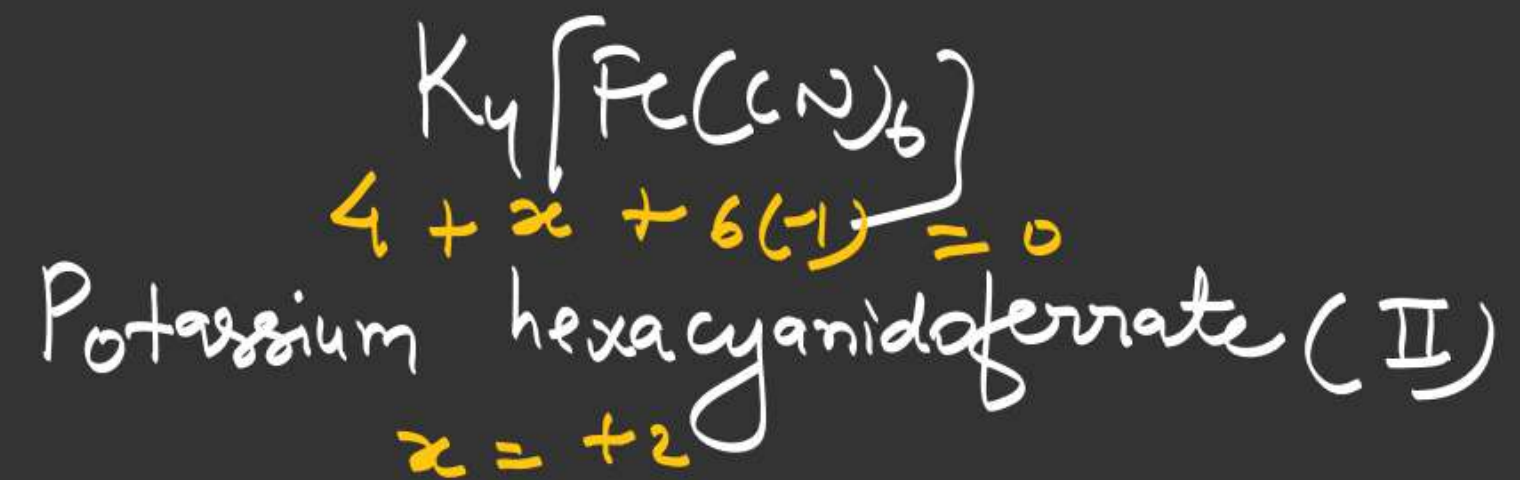 K₄[Fe(CN)₆]
4 + x + 6(-1) = 0
Potassium hexacyanidoferrate (II)
x = +2